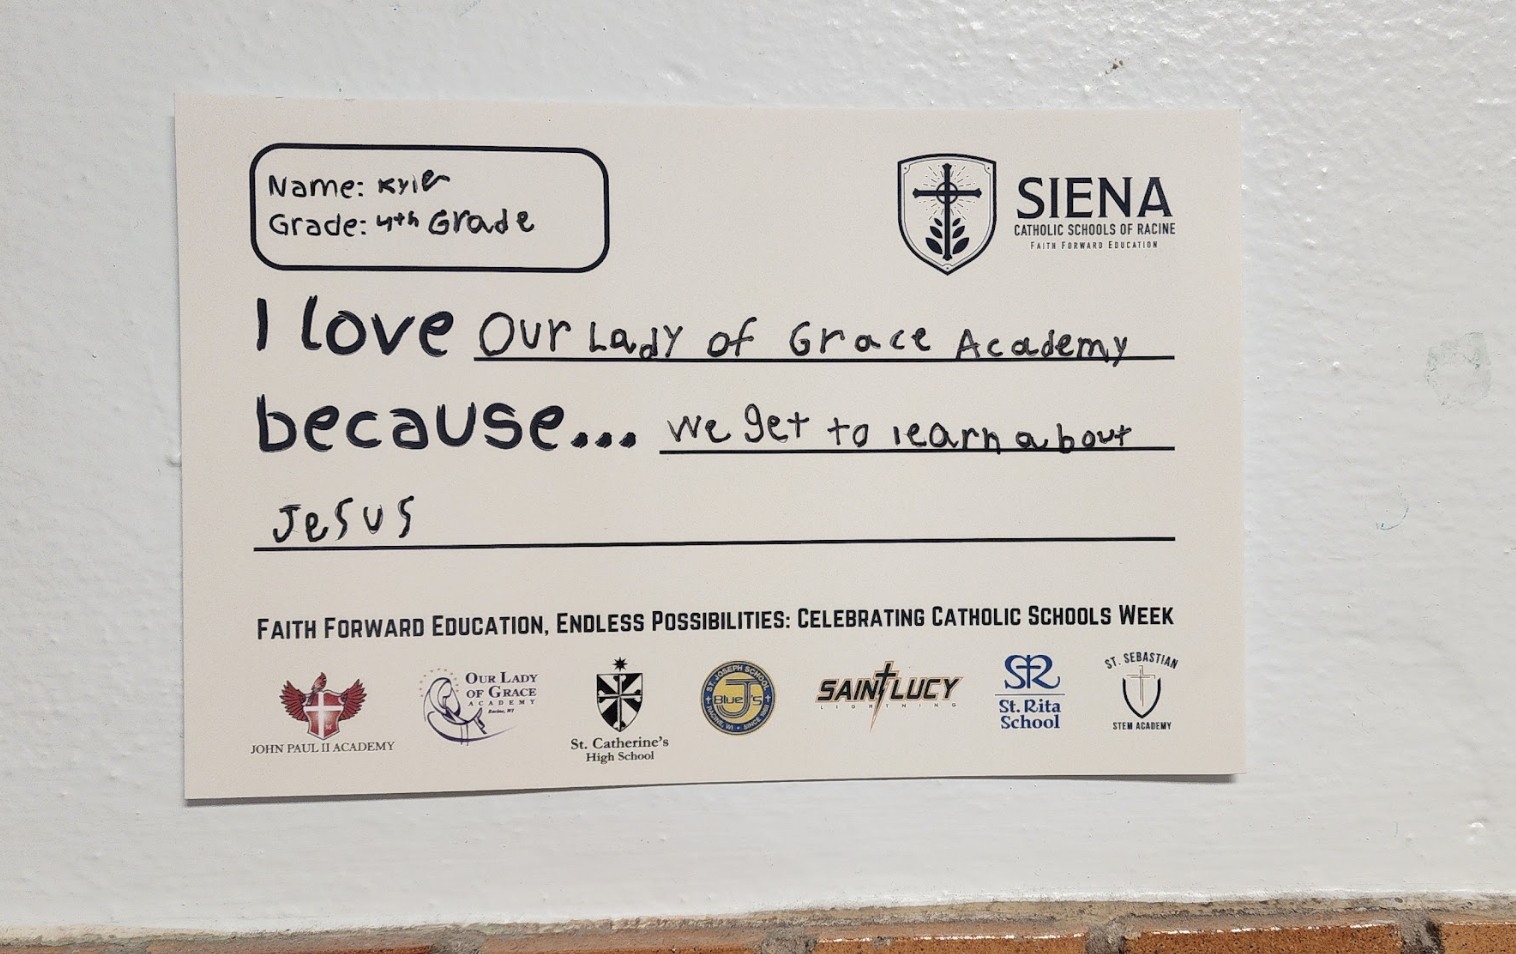 Name: Kyler
Grade: 4th Grade
SIENA
CATHOLIC SCHOOLS OF RACINE
FAITH FORWARD EDUCATION
I love Our Lady of Grace Academy
because... we get to learn about
Jesus
FAITH FORWARD EDUCATION, ENDLESS POSSIBILITIES: CELEBRATING CATHOLIC SCHOOLS WEEK
JOHN PAUL II ACADEMY
OUR LADY
OF GRACE
ACADEMY
Racine, WI
St. Catherine's
High School
ST. JOSEPH SCHOOL
Blue J's
RACINE, WI
SAINT LUCY
LIGHTNING
SR
St. Rita
School
ST. SEBASTIAN
STEM ACADEMY